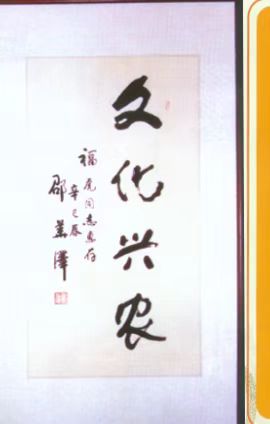 文化兴农
福虎同志惠存
辛巳春
邵华泽